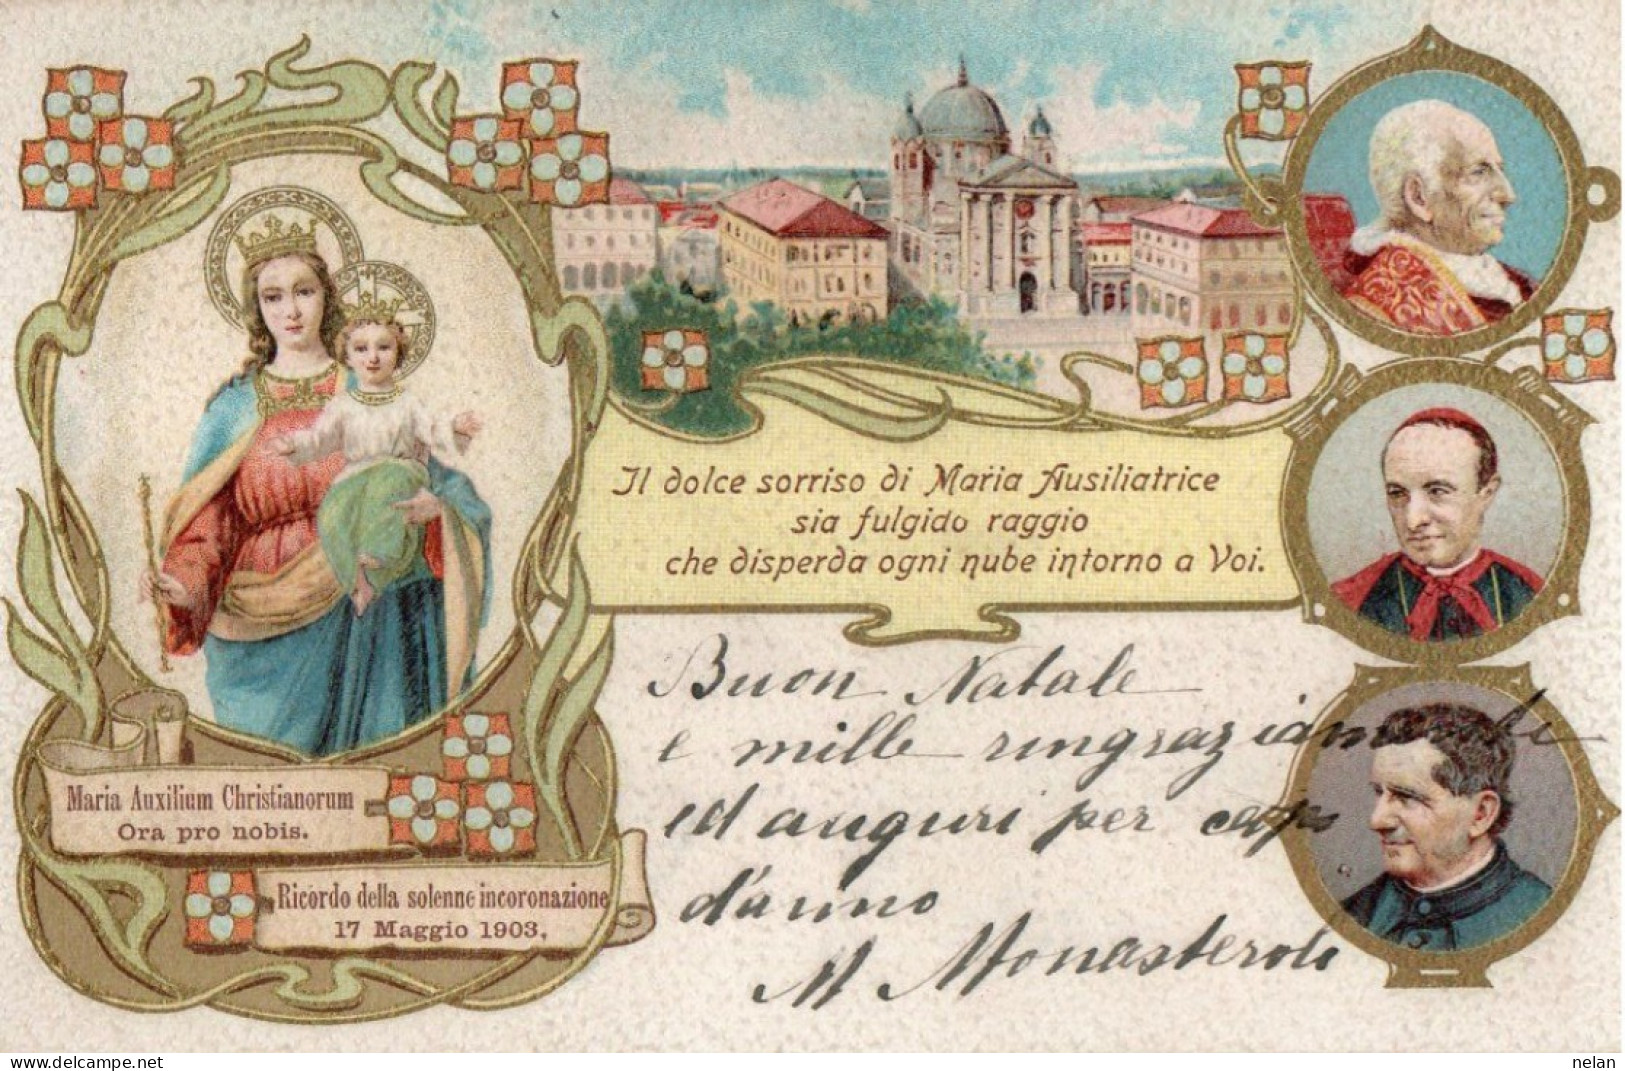 Il dolce sorriso di Maria Ausiliatrice
sia fulgido raggio
che disperda ogni nube intorno a Voi.
Buon Natale
e mille ringraziamenti
ed auguri per capo
d'anno
M Monasterolo
Maria Auxilium Christianorum
Ora pro nobis.
Ricordo della solenne incoronazione
17 Maggio 1903.
www.delcampe.net
nelan